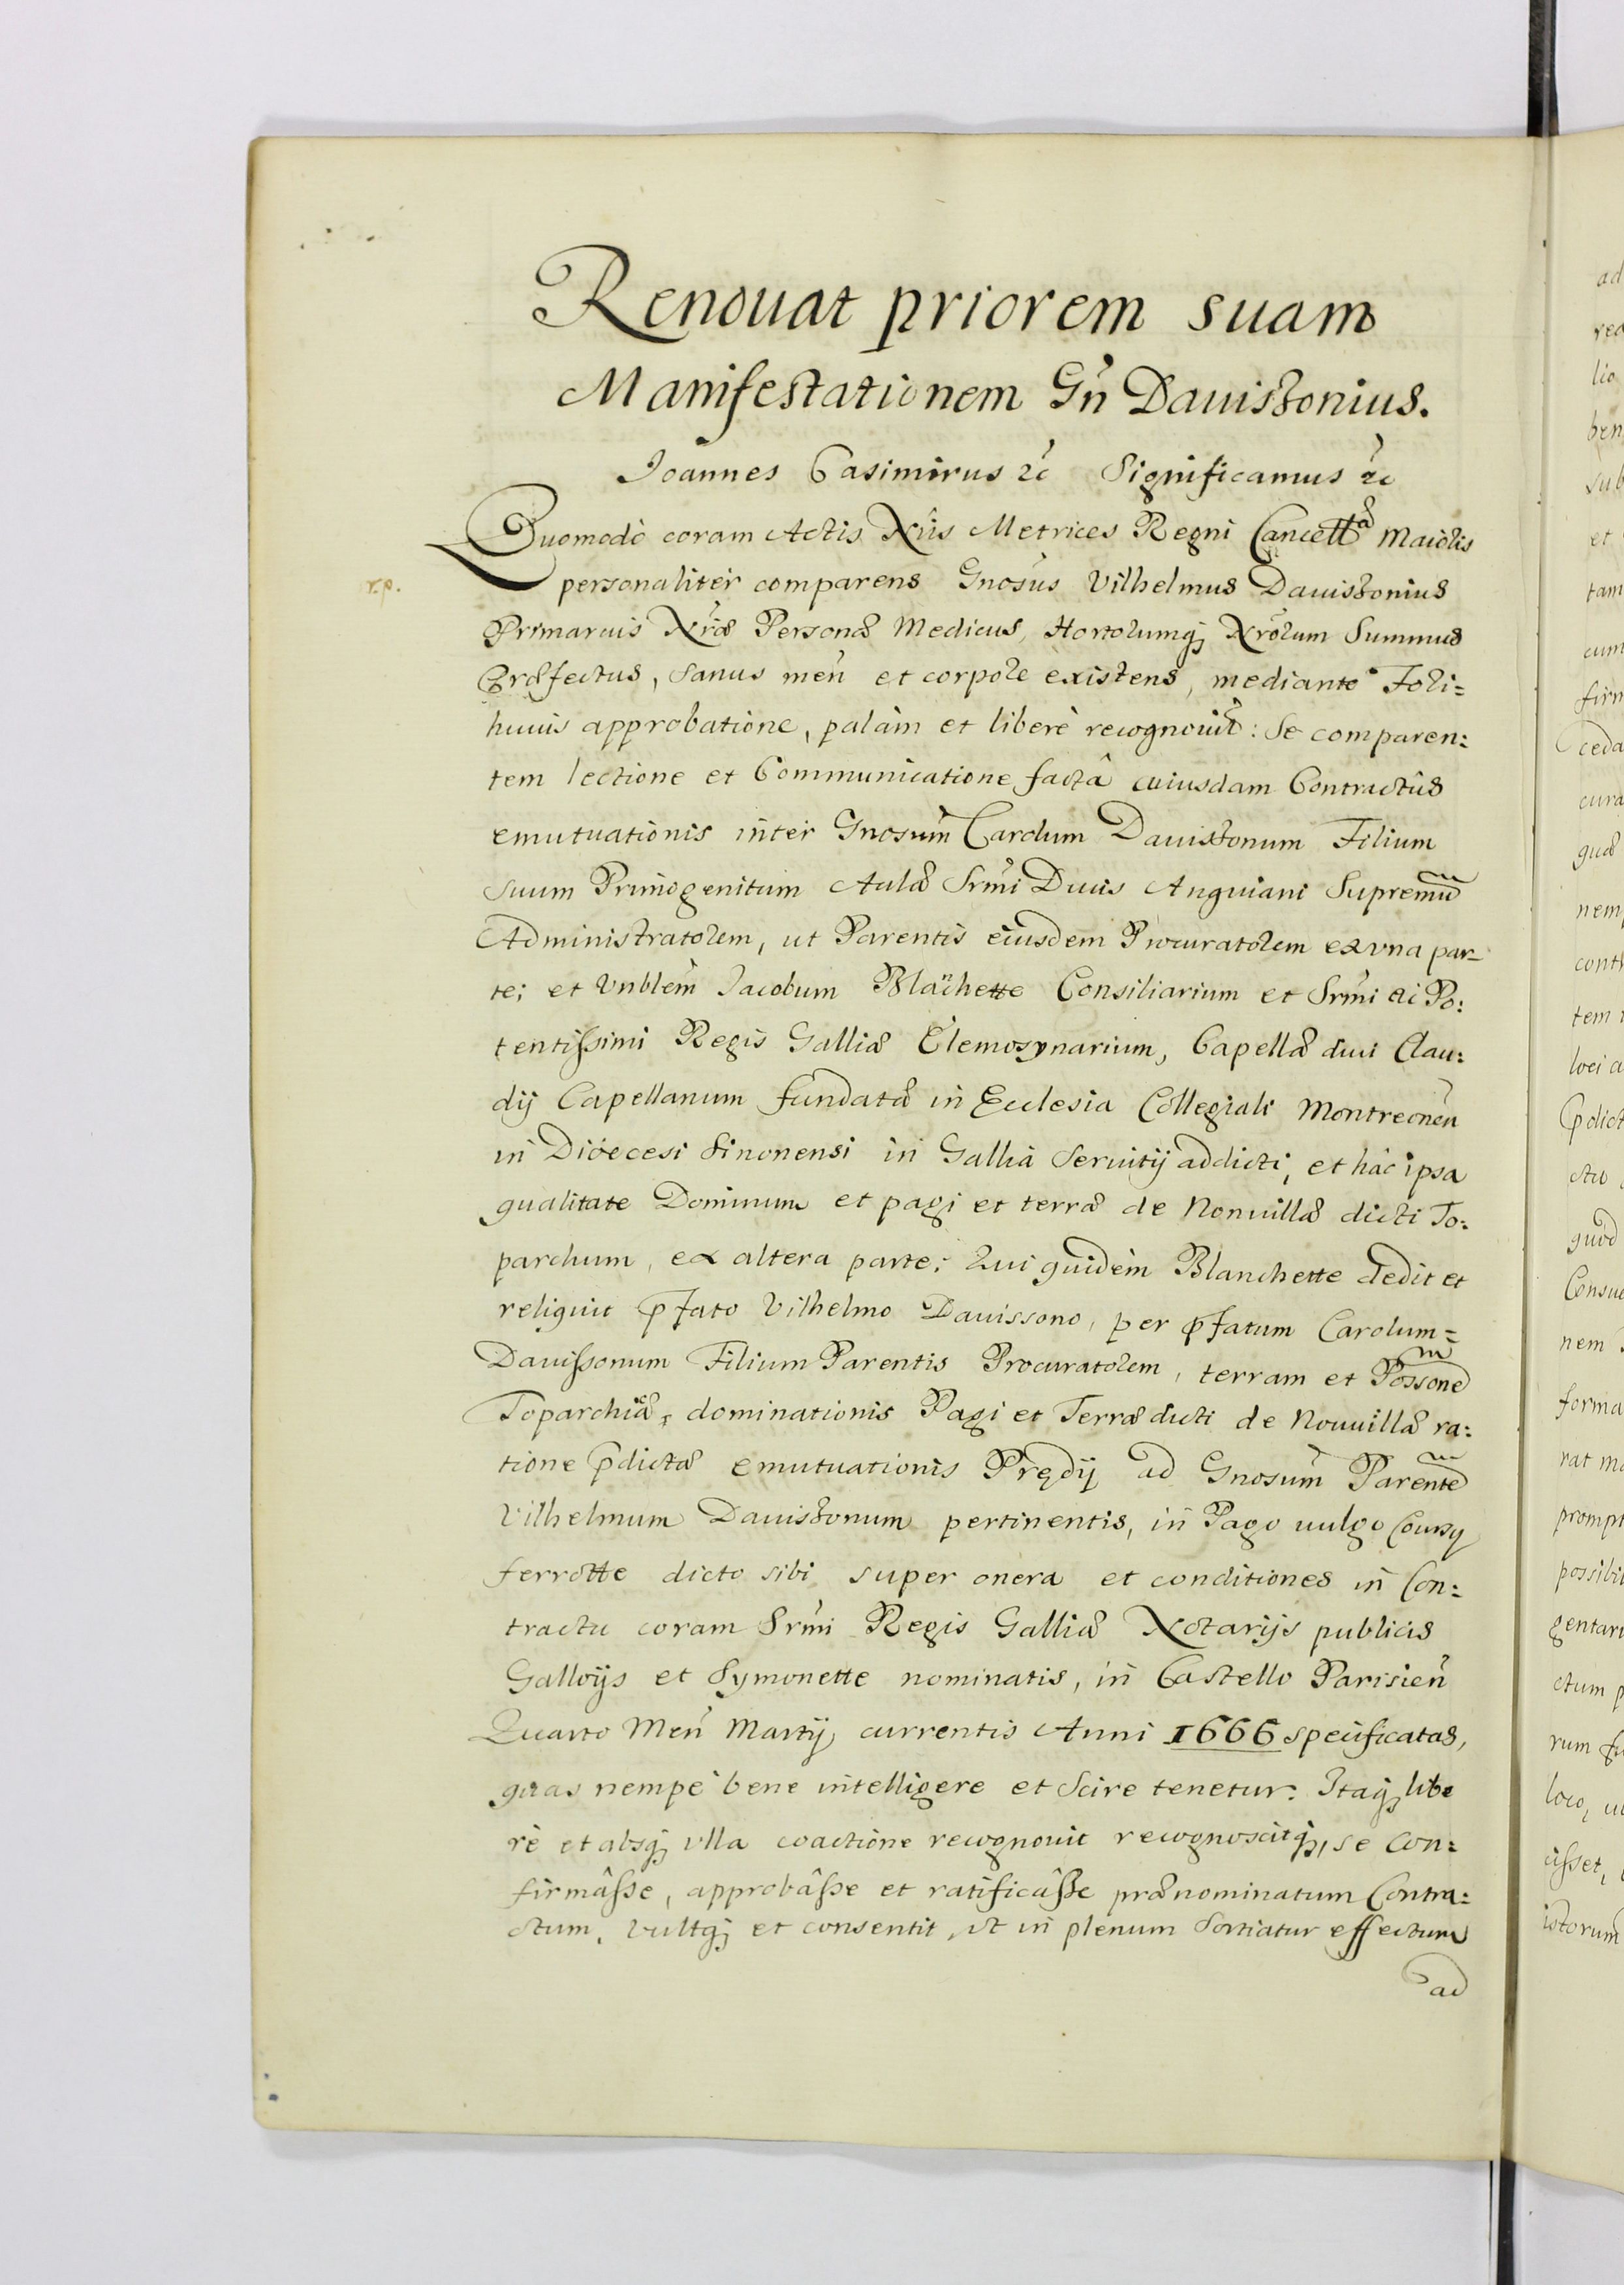 Renouat priorem suam
Manifestationem Gñ Dauissonius.
Joannes Casimirus &c Significamus &c
Quomodò coram Actis Nr̃is Metrices Regni Cancellã Maioris
r.p.
personaliter comparens Gnosus Vilhelmus Dauissonius
Primarius Nr̃æ Personæ Medicus, Hortorumq; Nr̃orum Summus
Præfectus, Sanus meñ et corpore existens, mediante Fori=
huius approbatione, palàm et liberè recognouit: Se comparen:
tem lectione et Communicatione factâ cuiusdam Contractûs
emutuationis inter Gnosum Carolum Dauissonum Filium
Suum Primogenitum Aulæ Srm̃i Ducis Anguiani Supremũ
Administratorem, ut Parentis eiusdem Procuratorem ex vna par=
te; et Vnblem̃ Jacobum Blãchette Consiliarium et Srm̃i ac Po:
tentissimi Regis Galliæ Elemosynarium, Capellæ diui Clau:
dij Capellanum fundatæ in Ecclesia Collegiali Montreoneñ
in Dioecesi Sinonensi in Gallia Seruitij addicti, et hâc ipsa
qualitate Dominum et pagi et terræ de Nonuillæ dicti To:
parchum, ex altera parte; Qui quidèm Blanchette dedit et
reliquit p̃fato Vilhelmo Dauissono, per p̃fatum Carolum=
Dauissonum Filium Parentis Procuratorem, terram et Possone
Toparchiæ, dominationis Pagi et Terræ dicti de Nouuillæ ra:
tione p̃dictæ emutuationis Prędij ad Gnosum Parente
Vilhelmum Dauissonum pertinentis, in Pago uulgo Coursy
ferrotte dicto sibi super onera et conditiones in Con:
tractu coram Srm̃i Regis Galliæ Notarijs publicis
Galloijs et Symonette nominatis, in Castello Parisieñ
Quarto Meñ Martij currentis Anni 1666 specificatas,
quas nempe bene intelligere et Scire tenetur. Itaq; libe
rè et absq; vlla coactione recognouit recognoscitq;, se con:
firmâsse, approbâsse et ratificâsse prænominatum Contra:
ctum, vultq; et consentit, ut in plenum sortiatur effectum
ad